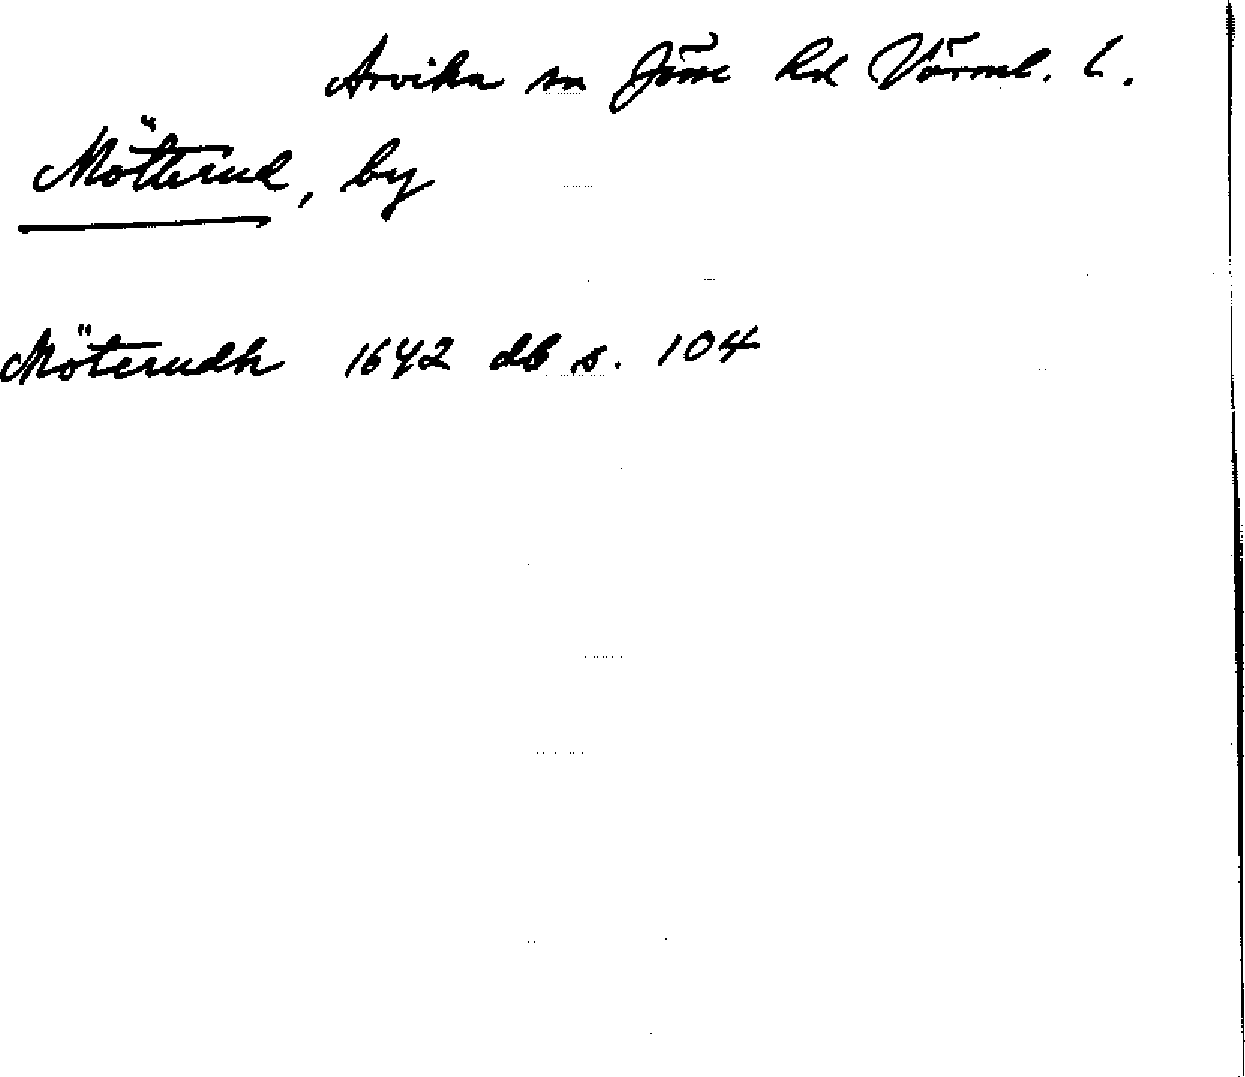 Arvika sn Jösse hd Värml. l.
Mötterud, by
Möterudh 1642 db s. 104